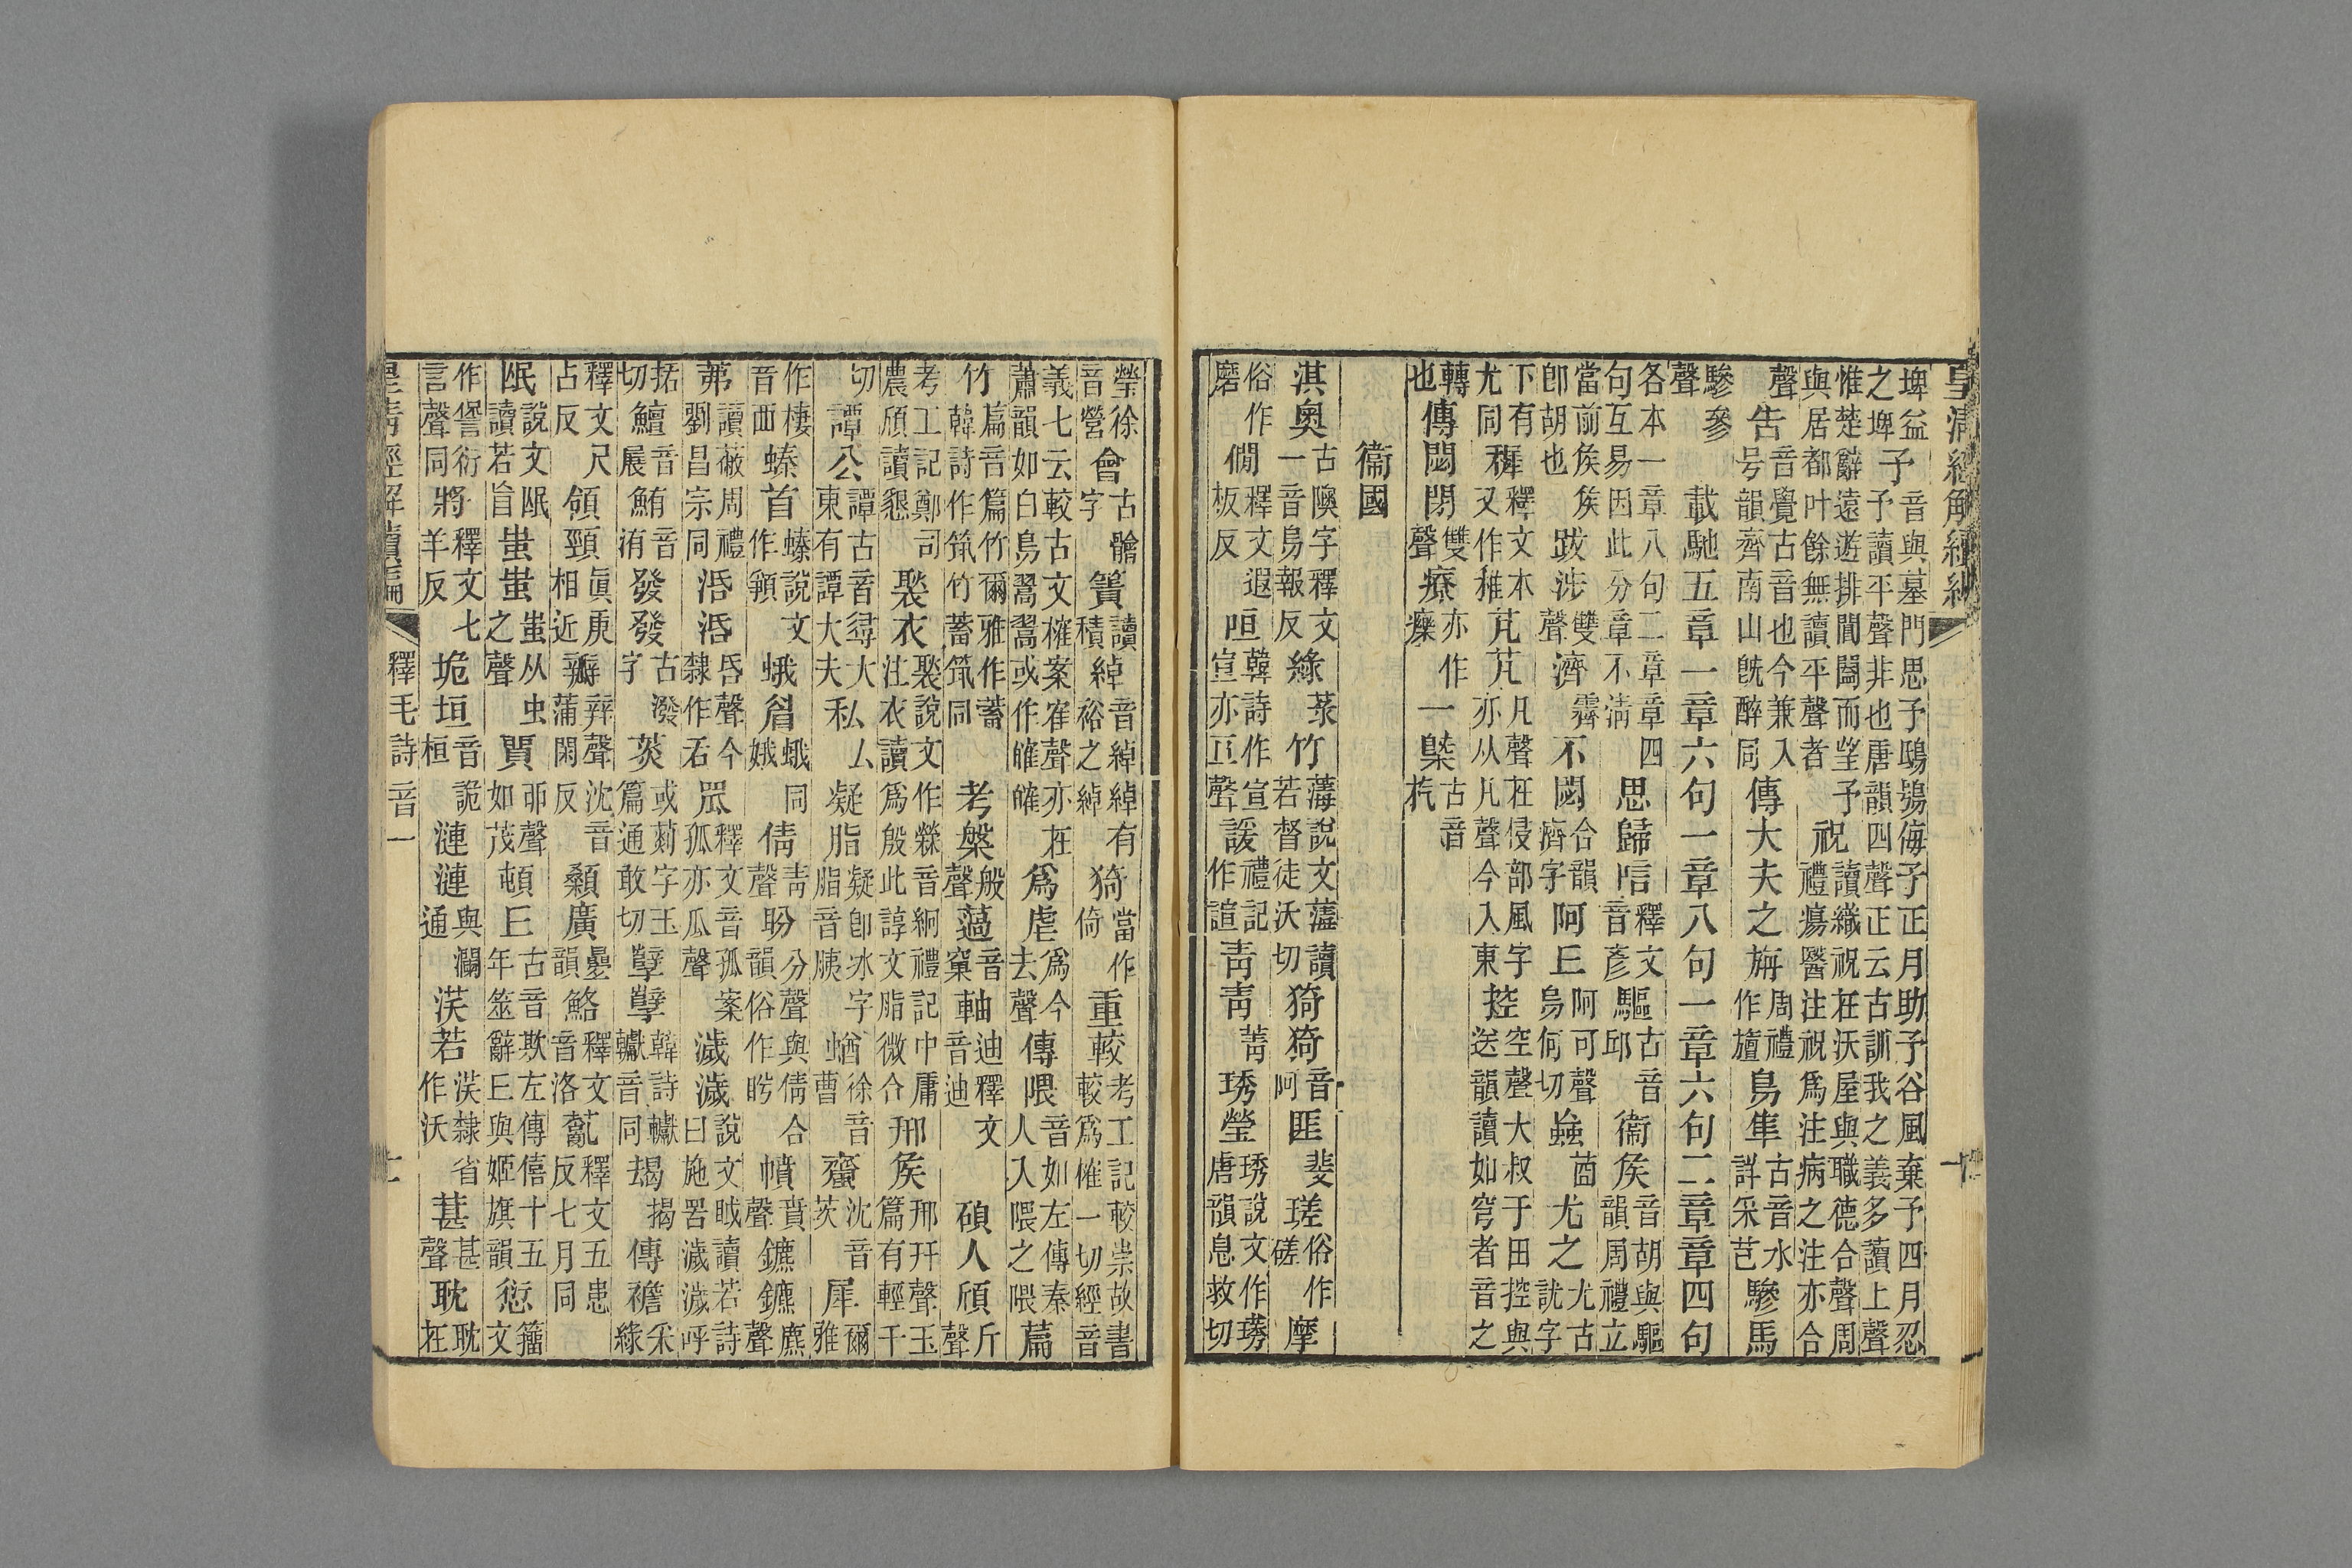 皇清經解續編
埤益之埤予音與墓門思予鴟鴞侮予正月助予谷風棄予四月忍予讀平聲非也唐韻四聲正云古訓我之義多讀上聲
惟楚辭遠遊排閶闔而望予與居都叶餘無讀平聲者祝讀織祝在沃屋與職德合聲周禮瘍醫注祝爲注病之注亦合
聲告音覺古音也今兼入号韻齊南山旣醉同傳大夫之旃周禮作旜鳥隼古音水詳采芑驂馬
驂參聲載馳五章一章六句一章八句一章六句二章章四句
各本一章八句二章章四句互易因此分章不淸思歸唁釋文音彥驅古音邱衞矦音胡與驅韻周禮立
當前矦矦卽胡也跋涉雙聲濟霽不閟合韻濟字阿丘阿可聲烏何切蝱莔尤之尤古訧字
下有尤同穉釋文本又作稚芃芃凡聲在侵部風字亦从凡聲今入東控空聲大叔于田控與送韻讀如穹者音之
轉也傳閟閉雙聲療亦作𤻲一槩古音杚
衞國
淇奧古隩字釋文一音烏報反綠菉竹薄說文薄讀若督徒沃切猗猗音阿匪斐瑳俗作磋摩
俗作磨僩釋文遐板反咺韓詩作宣宣亦亘聲諼禮記作諠靑靑菁琇瑩琇說文作璓唐韻息救切
瑩徐音營會古䯤字簀讀積綽音綽綽有裕之綽猗當作倚重較考工記較崇故書較爲榷一切經音
義七云較古文榷案隺聲亦在蕭韻如白鳥翯翯或作皠皠爲虐爲今去聲傳隈音如左傳秦人入隈之隈篇
竹篇音篇竹爾雅作蓄韓詩作筑竹蓄筑同考槃般聲薖音窠軸迪釋文音迪碩人頎斤聲
考工記鄭司農頎讀懇褧衣褧說文作檾音絅禮記中庸注衣讀爲殷此諄文脂微合邢矦邢幵聲玉篇有輕干
切譚公譚古音尋大東有譚大夫私厶凝脂凝卽冰字脂音胰蝤徐音曹蠐沈音茨犀爾雅
作棲音西螓首螓說文作䫖蛾眉蛾同娥倩靑聲盼分聲與倩合韻俗作盻幩賁聲鑣鑣麃聲
茀讀蔽周禮劉昌宗同活活昏聲今隸作舌罛釋文音孤案孤亦瓜聲濊濊說文䀛讀若詩曰施罟濊濊呼
括切鱣音展鮪音洧發發古潑字菼或䓟字玉篇通敢切孼孼韓詩𨏲音同朅揭傳襜采緣
釋文尺占反領頸眞庚相近瓣辡聲沈音蒲閑反顙廣疊韻鮥釋文音洛薍釋文五患反七月同
氓說文氓讀若盲蚩蚩蚩从虫之聲貿丣聲如茂頓丘古音欺左傳僖十五年筮辭丘與姬旗韻愆籒文
作諐衍言聲同將釋文七羊反垝垣音詭桓漣漣與瀾通渶若渶隸省作沃葚甚聲耽耽在
皇清經解續編 釋毛詩音一 十一